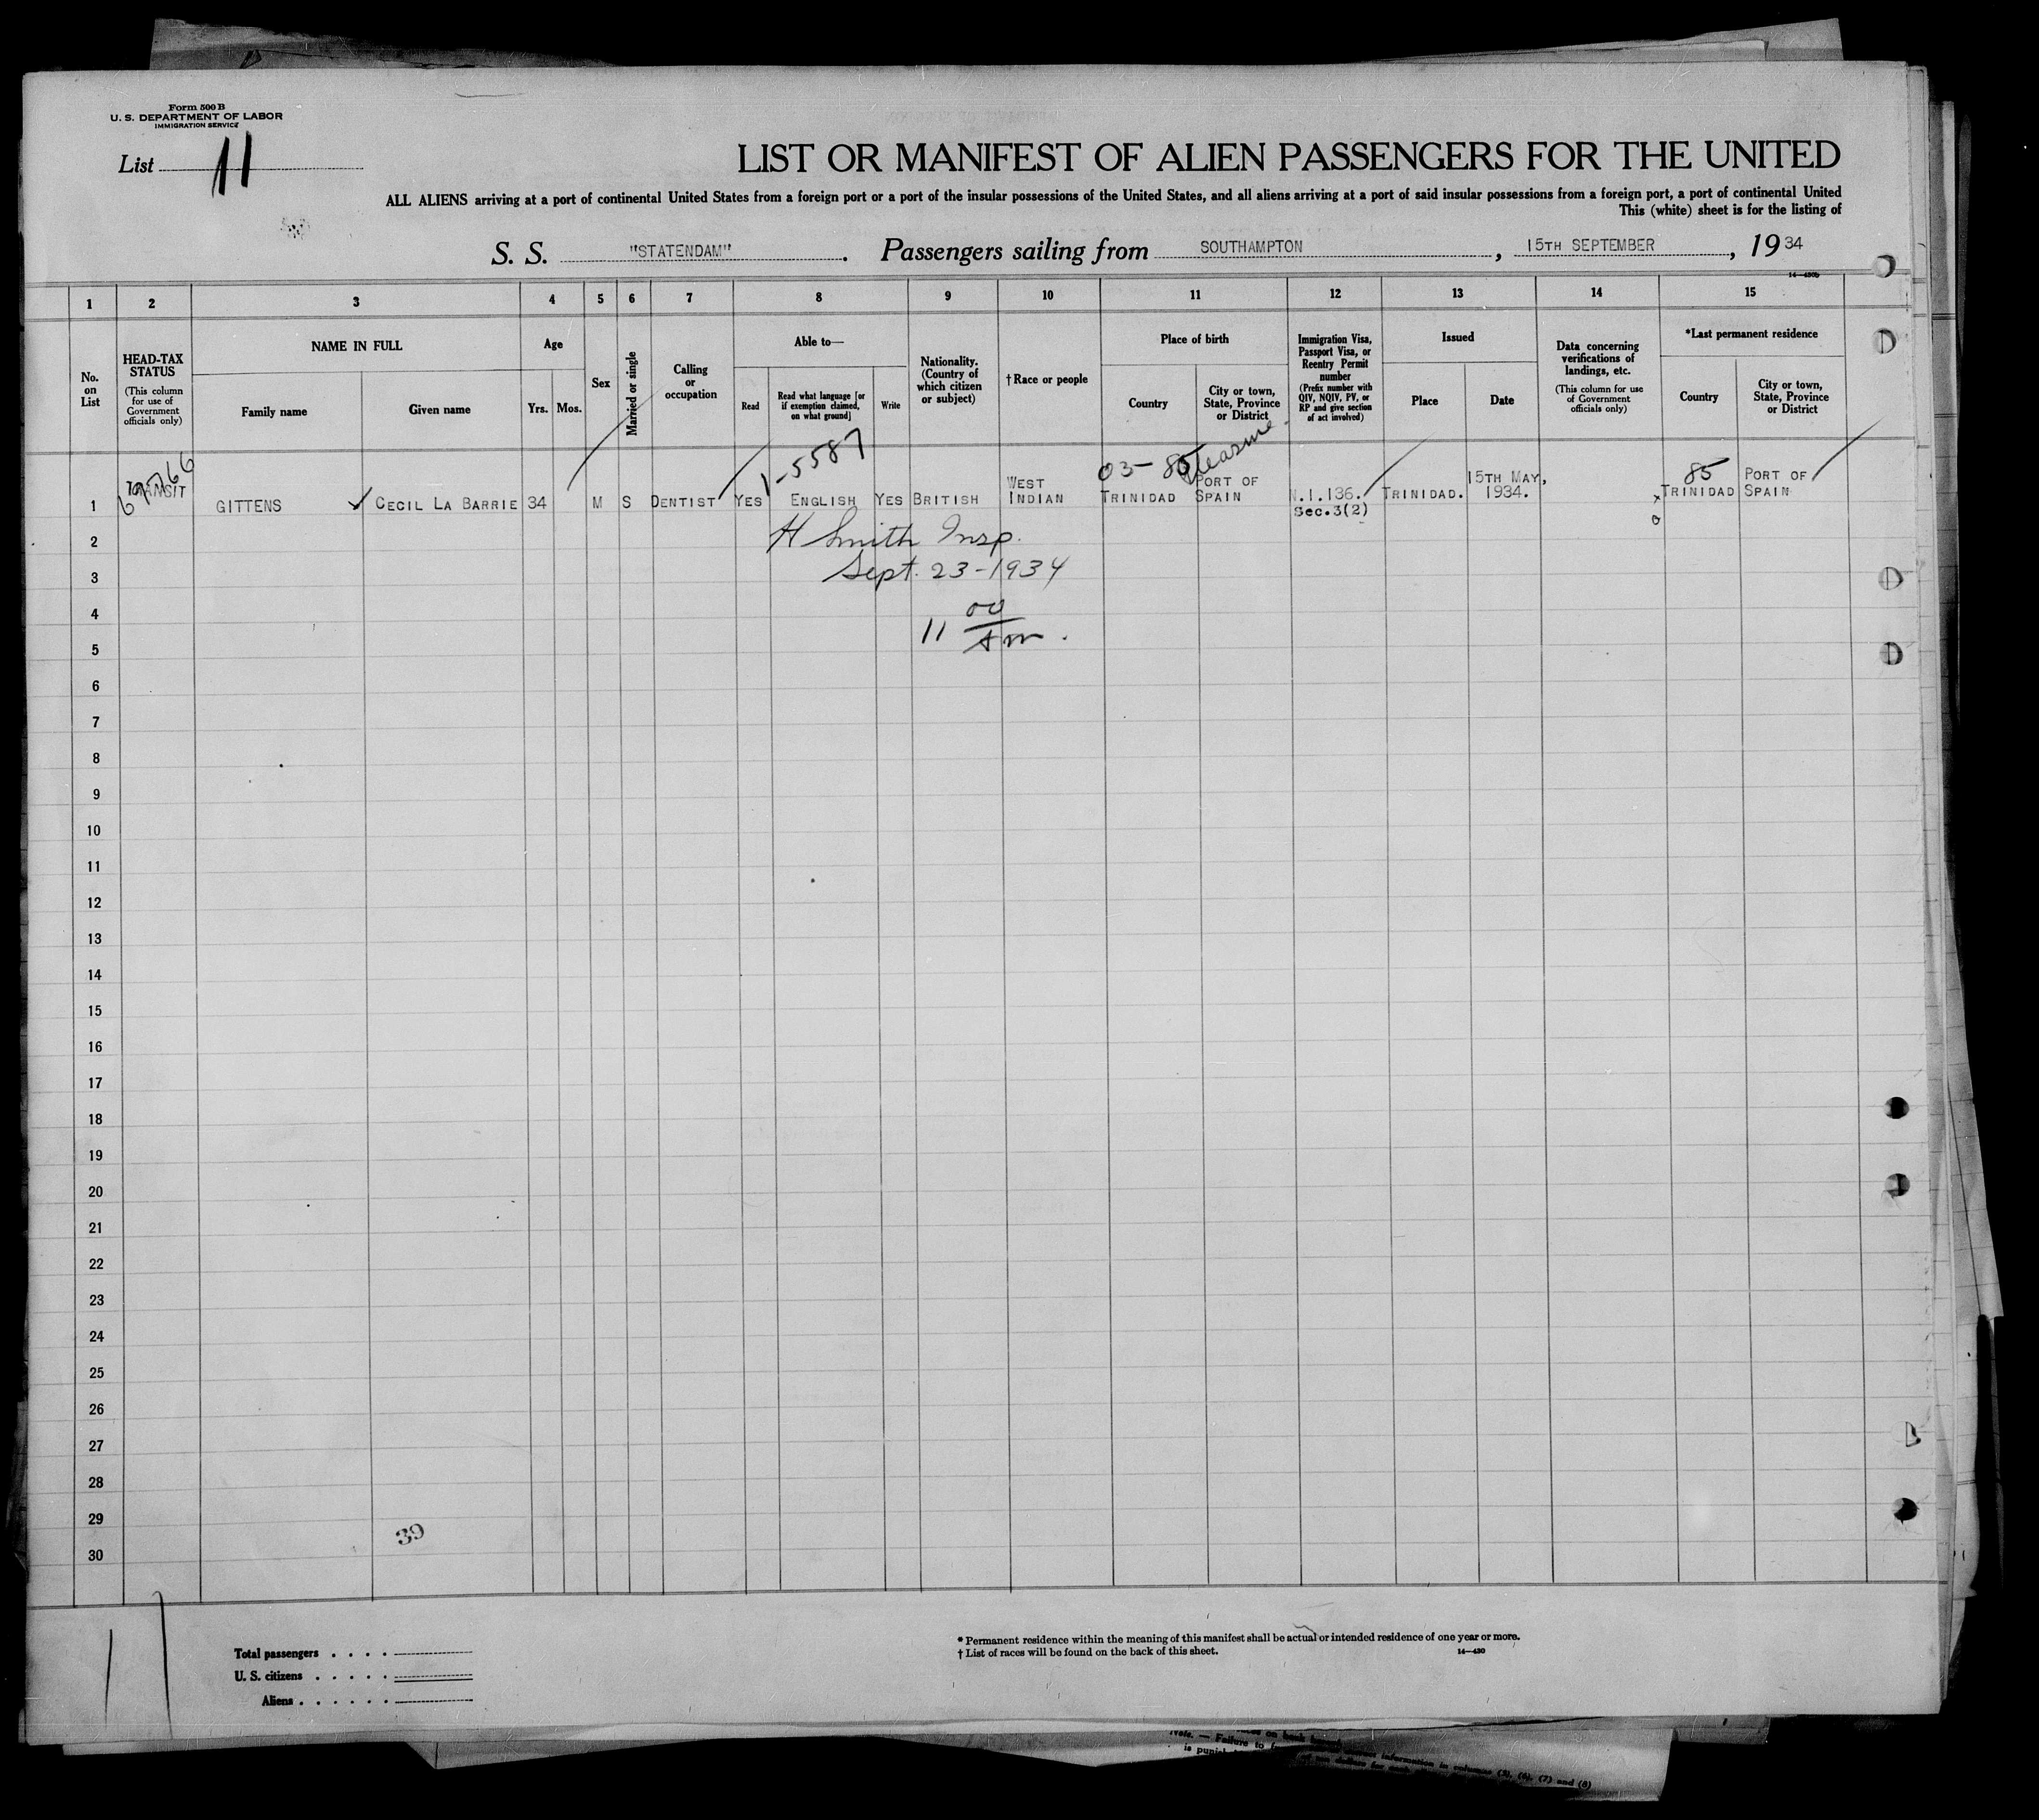 Form 500 B
U. S. DEPARTMENT OF LABOR
IMMIGRATION SERVICE
List 11
LIST OR MANIFEST OF ALIEN PASSENGERS FOR THE UNITED
ALL ALIENS arriving at a port of continental United States from a foreign port or a port of the insular possessions of the United States, and all aliens arriving at a port of said insular possessions from a foreign port, a port of continental United
This (white) sheet is for the listing of
S. S. "STATENDAM". Passengers sailing from SOUTHAMPTON, 15TH SEPTEMBER, 1934
14—430b
1 2 3 4 5 6 7 8 9 10 11 12 13 14 15
No. on List
HEAD-TAX STATUS (This column for use of Government officials only)
NAME IN FULL
Family name
Given name
Age
Yrs. Mos.
Sex
Married or single
Calling or occupation
Able to—
Read
Read what language [or if exemption claimed, on what ground]
Write
Nationality. (Country of which citizen or subject)
†Race or people
Place of birth
Country
City or town, State, Province or District
Immigration Visa, Passport Visa, or Reentry Permit number (Prefix number with QIV, NQIV, PV, or RP and give section of act involved)
Issued
Place
Date
Data concerning verifications of landings, etc. (This column for use of Government officials only)
*Last permanent residence
Country
City or town, State, Province or District
1-5587
03-85 Pleasure
85
1 TRANSIT GITTENS ✓ CECIL LA BARRIE 34 M S DENTIST YES ENGLISH YES BRITISH WEST INDIAN TRINIDAD PORT OF SPAIN N.I.136. Sec.3(2) TRINIDAD. 15TH MAY, 1934. TRINIDAD PORT OF SPAIN
2
H Smith Insp.
3
Sept. 23-1934
4
11 00 Am.
5
6
7
8
9
10
11
12
13
14
15
16
17
18
19
20
21
22
23
24
25
26
27
28
29
39
30
Total passengers . . . .
U. S. citizens . . . . .
Aliens . . . . . .
* Permanent residence within the meaning of this manifest shall be actual or intended residence of one year or more.
† List of races will be found on the back of this sheet.
14—430